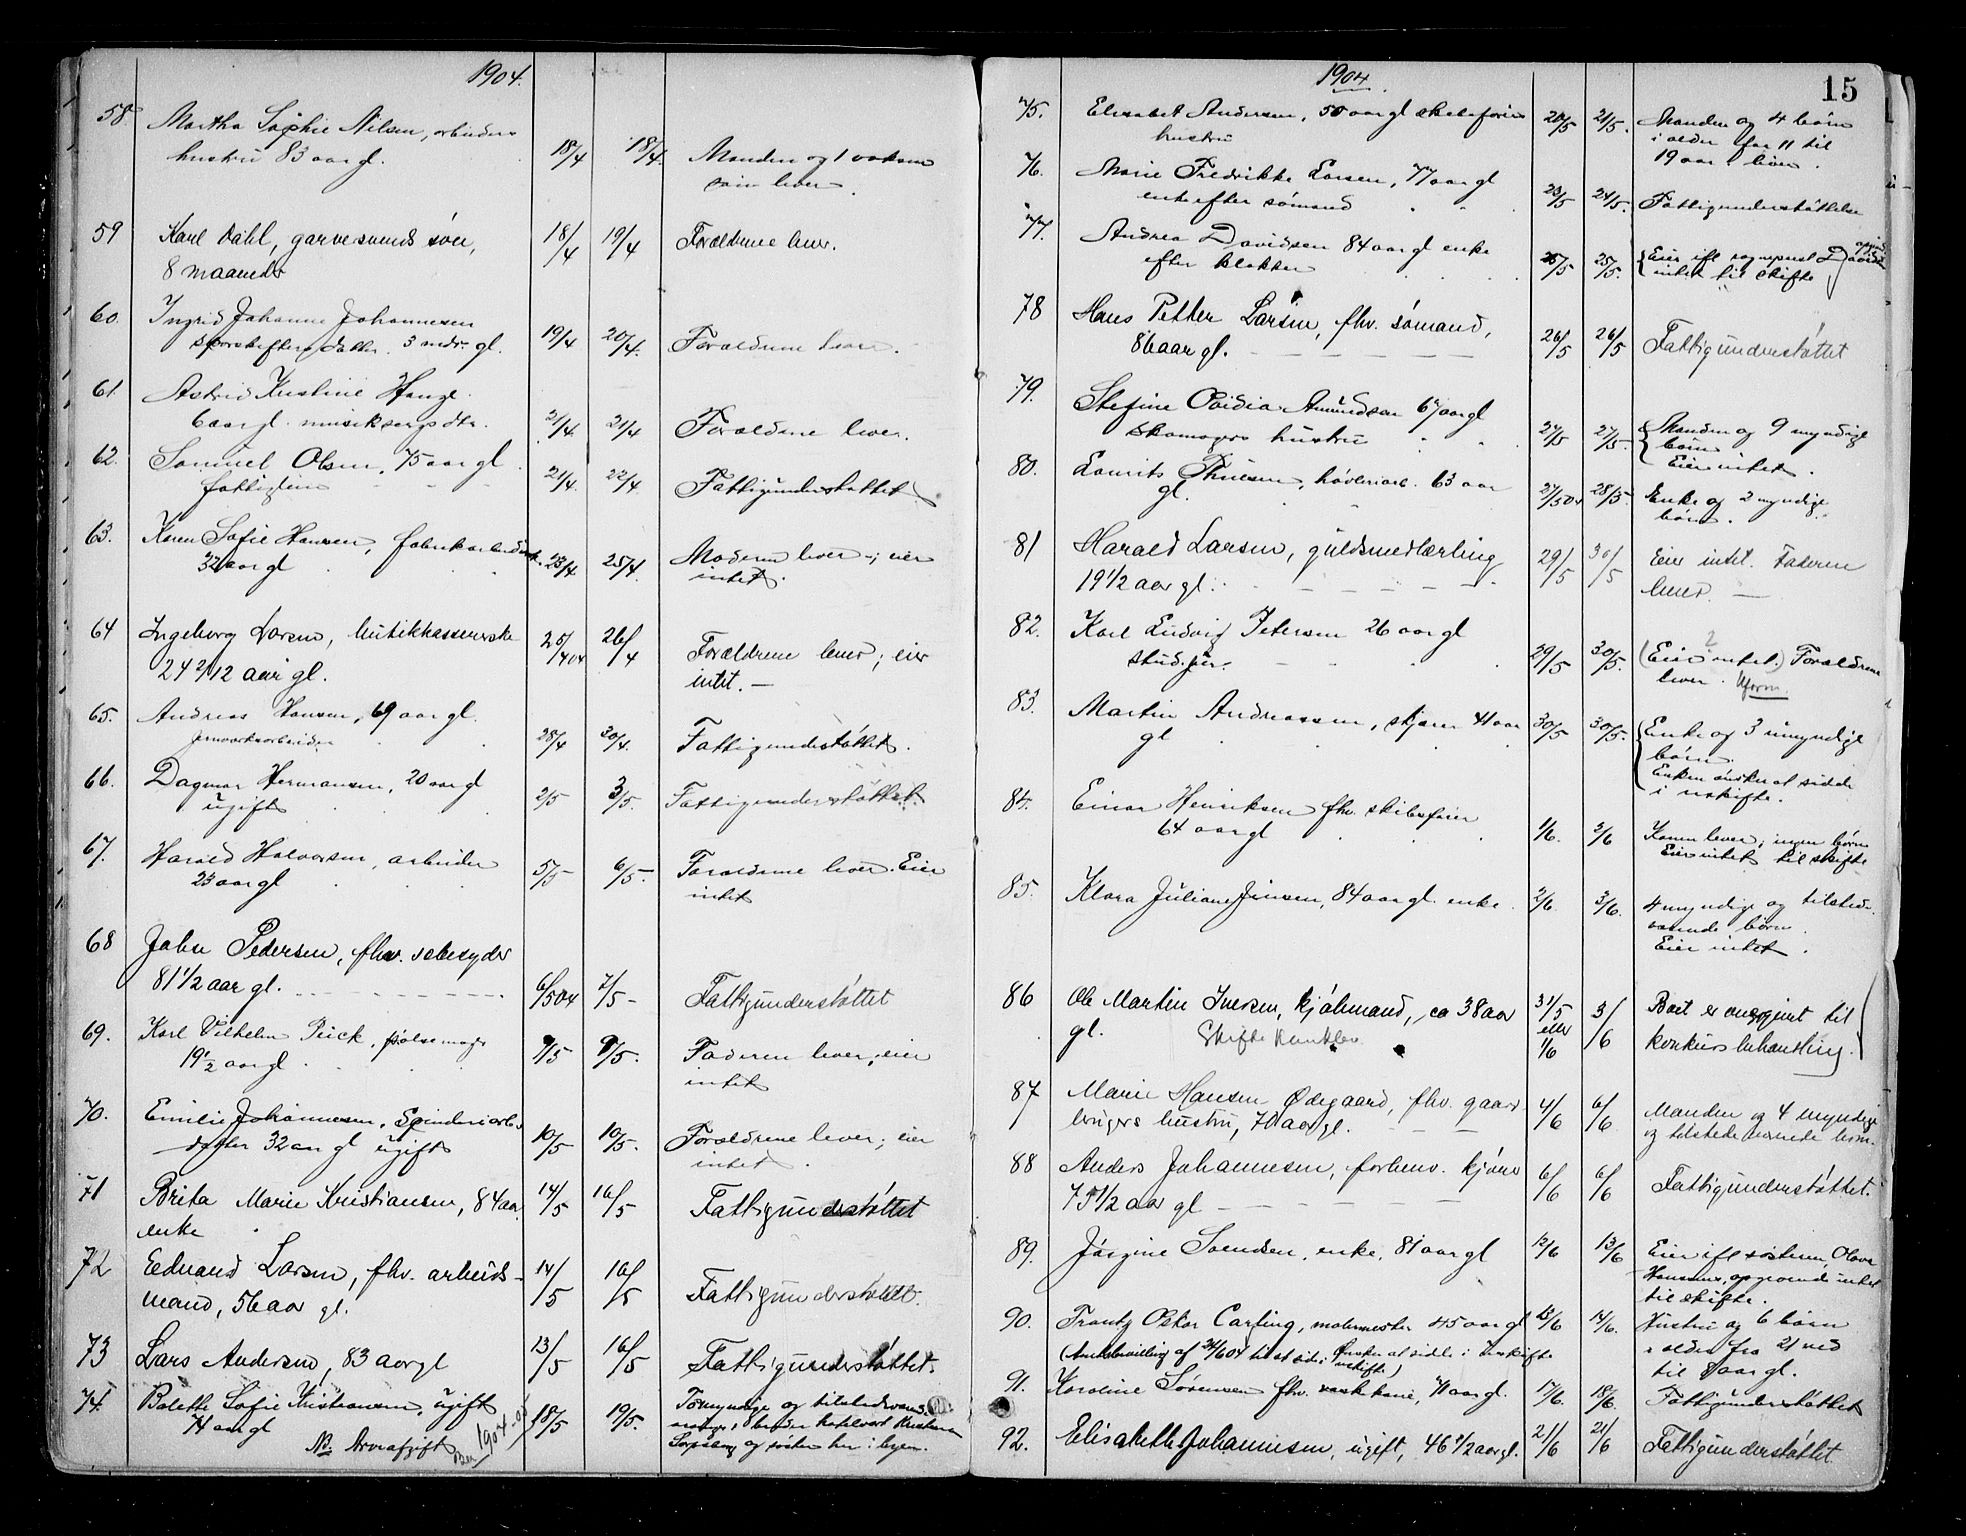 1904.
58 Martha Sophie Nilsen, arbeiders
hustru 83 aar gl. 18/4 18/4. Manden og 1 voksen
søn lever.
59 Karl Dahl, garvesvends søn, 18/4 19/4 Forældrene lever.
8 maaneder
60. Ingrid Johanne Johannesen
datter. 3 mdr. gl. 19/4 20/4. Forældrene lever.
61. Astrid Kristine Hauge
6 aar gl. musikers dtr. 21/4. 21/4 Forældrene lever.
62. Samuel Olsen, 75 aar gl.
fattiglem 21/4. 22/4. Fattigunderstøttet
63. Karen Sofie Hansen, fabrikarbeiderske.
32 aar gl 23/4 25/4. Moderen lever; eier
intet.
64 Ingeborg Larsen, butikkassererske 25/4 04 26/4 Forældrene lever; eier
24 2/12 aar gl. intet. —
65. Andreas Hansen, 69 aar gl.
jernværksarbeider 28/4 30/4. Fattigunderstøttet.
66. Dagmar Hermansen, 20 aar gl
ugift 2/5 3/5. Fattigunderstøttet.
67. Harald Halvorsen, arbeider 5/5 6/5- Forældrene lever. Eier
23 aar gl intet
68 John Pedersen, fhv. sæbesyder
81 1/2 aar gl. 6/5 04 7/5- Fattigunderstøttet
69. Karl Vilhelm Peick, pølsemager
19 1/2 aar gl. 9/5 9/5. Faderen lever; eier
intet
70. Emilie Johannesen, Spinderiarb.
datter 32 aar gl ugift 10/5 10/5. Forældrene lever; eier
intet.
71 Brita Marie Kristiansen, 84 aar, 14/5 16/5 Fattigunderstøttet
enke
72 Edvard Larsen, fhv. arbeids- 14/5 16/5 Fattigunderstøttet.
mand, 56 aar gl.
73 Lars Andersen, 83 aar gl 13/5 16/5 Fattigunderstøttet.
74. Bolette Sofie Kristiansen, ugift 18/5 19/5. og
74 aar gl
og søster her i byen.
NB. Arveafgift 1904-05
15
1904.
75. Elisabet Andersen, 50 aar gl skibsførers 20/5 21/5. Manden og 4 børn
hustru i alder fra 11 til
19 aar lever.
76. Marie Fredrikke Larsen, 77 aar gl
enke efter sømand 23/5 24/5. Fattigunderstøttelse
77. Andrea Davidsen 84 aar gl enke
efter klokker 25/5 25/5. Eier ifl sogneprest Daae
intet til skifte
78 Hans Petter Larsen, fhv. sømand,
86 aar gl. 26/5 26/5 Fattigunderstøttet
79. Stefine Ovidia Amundsen 67 aar gl
skomagers hustru 27/5 27/5. Manden og 9 myndige
børn
Eier intet.
80. Laurits Thuesen, høvleriarb. 63 aar
gl. 27/5 04 28/5. Enke og 2 myndige
børn.
81 Harald Larsen, guldsmedlærling 29/5 30/5 Eier intet. Faderen
19 1/2 aar gl. lever. —
82. Karl Ludvig Petersen 26 aar gl
stud. jur. 29/5 30/5. (Eier intet.) Forældrene
lever.
83. Martin Andreassen, skjærer 41 aar
gl 30/5 30/5. Enke og 3 umyndige
børn.
Enken ønsker at sidde
i uskifte.
84. Einar Henriksen fhv. skibsfører
64 aar gl 1/6. 2/6 Konen lever, ingen børn
Eier intet til skifte
85. Klara Juliane Jensen, 84 aar gl. enke. 2/6. 3/6. 4 myndige og tilstede-
værende børn.
Eier intet.
86 Ole Martin Iversen, kjøbmand, ca 38 aar 31/5 eller 1/6 3/6 Boet er overgivet til
gl. konkursbehandling.
87 Marie Hansen Ødegaard, fhv. gaard-
brugers hustru, 70 aar gl. 4/6 6/6 Manden og 4 myndige
og tilstedeværende børn.
88 Anders Johannesen, forhenv. kjører 6/6 6/6 Fattigunderstøttet.
75 1/2 aar gl
89. Jørgine Svendsen, enke, 81 aar gl 12/6 13/6 Eier ifl søsteren, Olava
Hansens, opgivende intet
til skifte.
90. Frantz Oskar Carling, malermester 45 aar gl 13/6 14/6. Hustru og 6 børn
i alder fra 21 ned
til 8 aar gl.
91. Karoline Sørensen fhv. vaskekone, 71 aar gl. 17/6. 18/6. Fattigunderstøttet
92. Elisabeth Johannesen, ugift, 46 1/2 aar gl. 21/6 21/6 Fattigunderstøttet